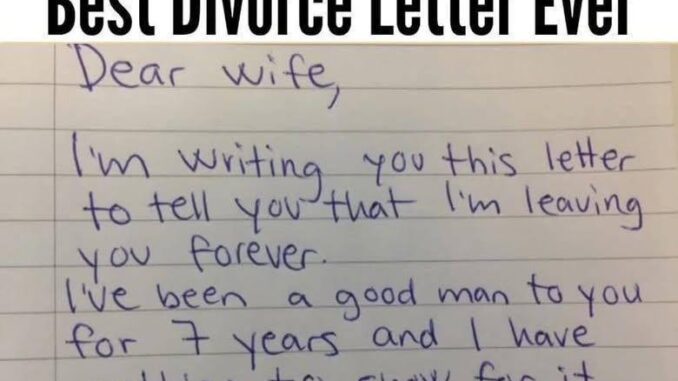 Best Divorce Letter Ever
Dear wife,
I'm writing you this letter
to tell you that I'm leaving
you forever.
I've been a good man to you
for 7 years and I have
to show for it